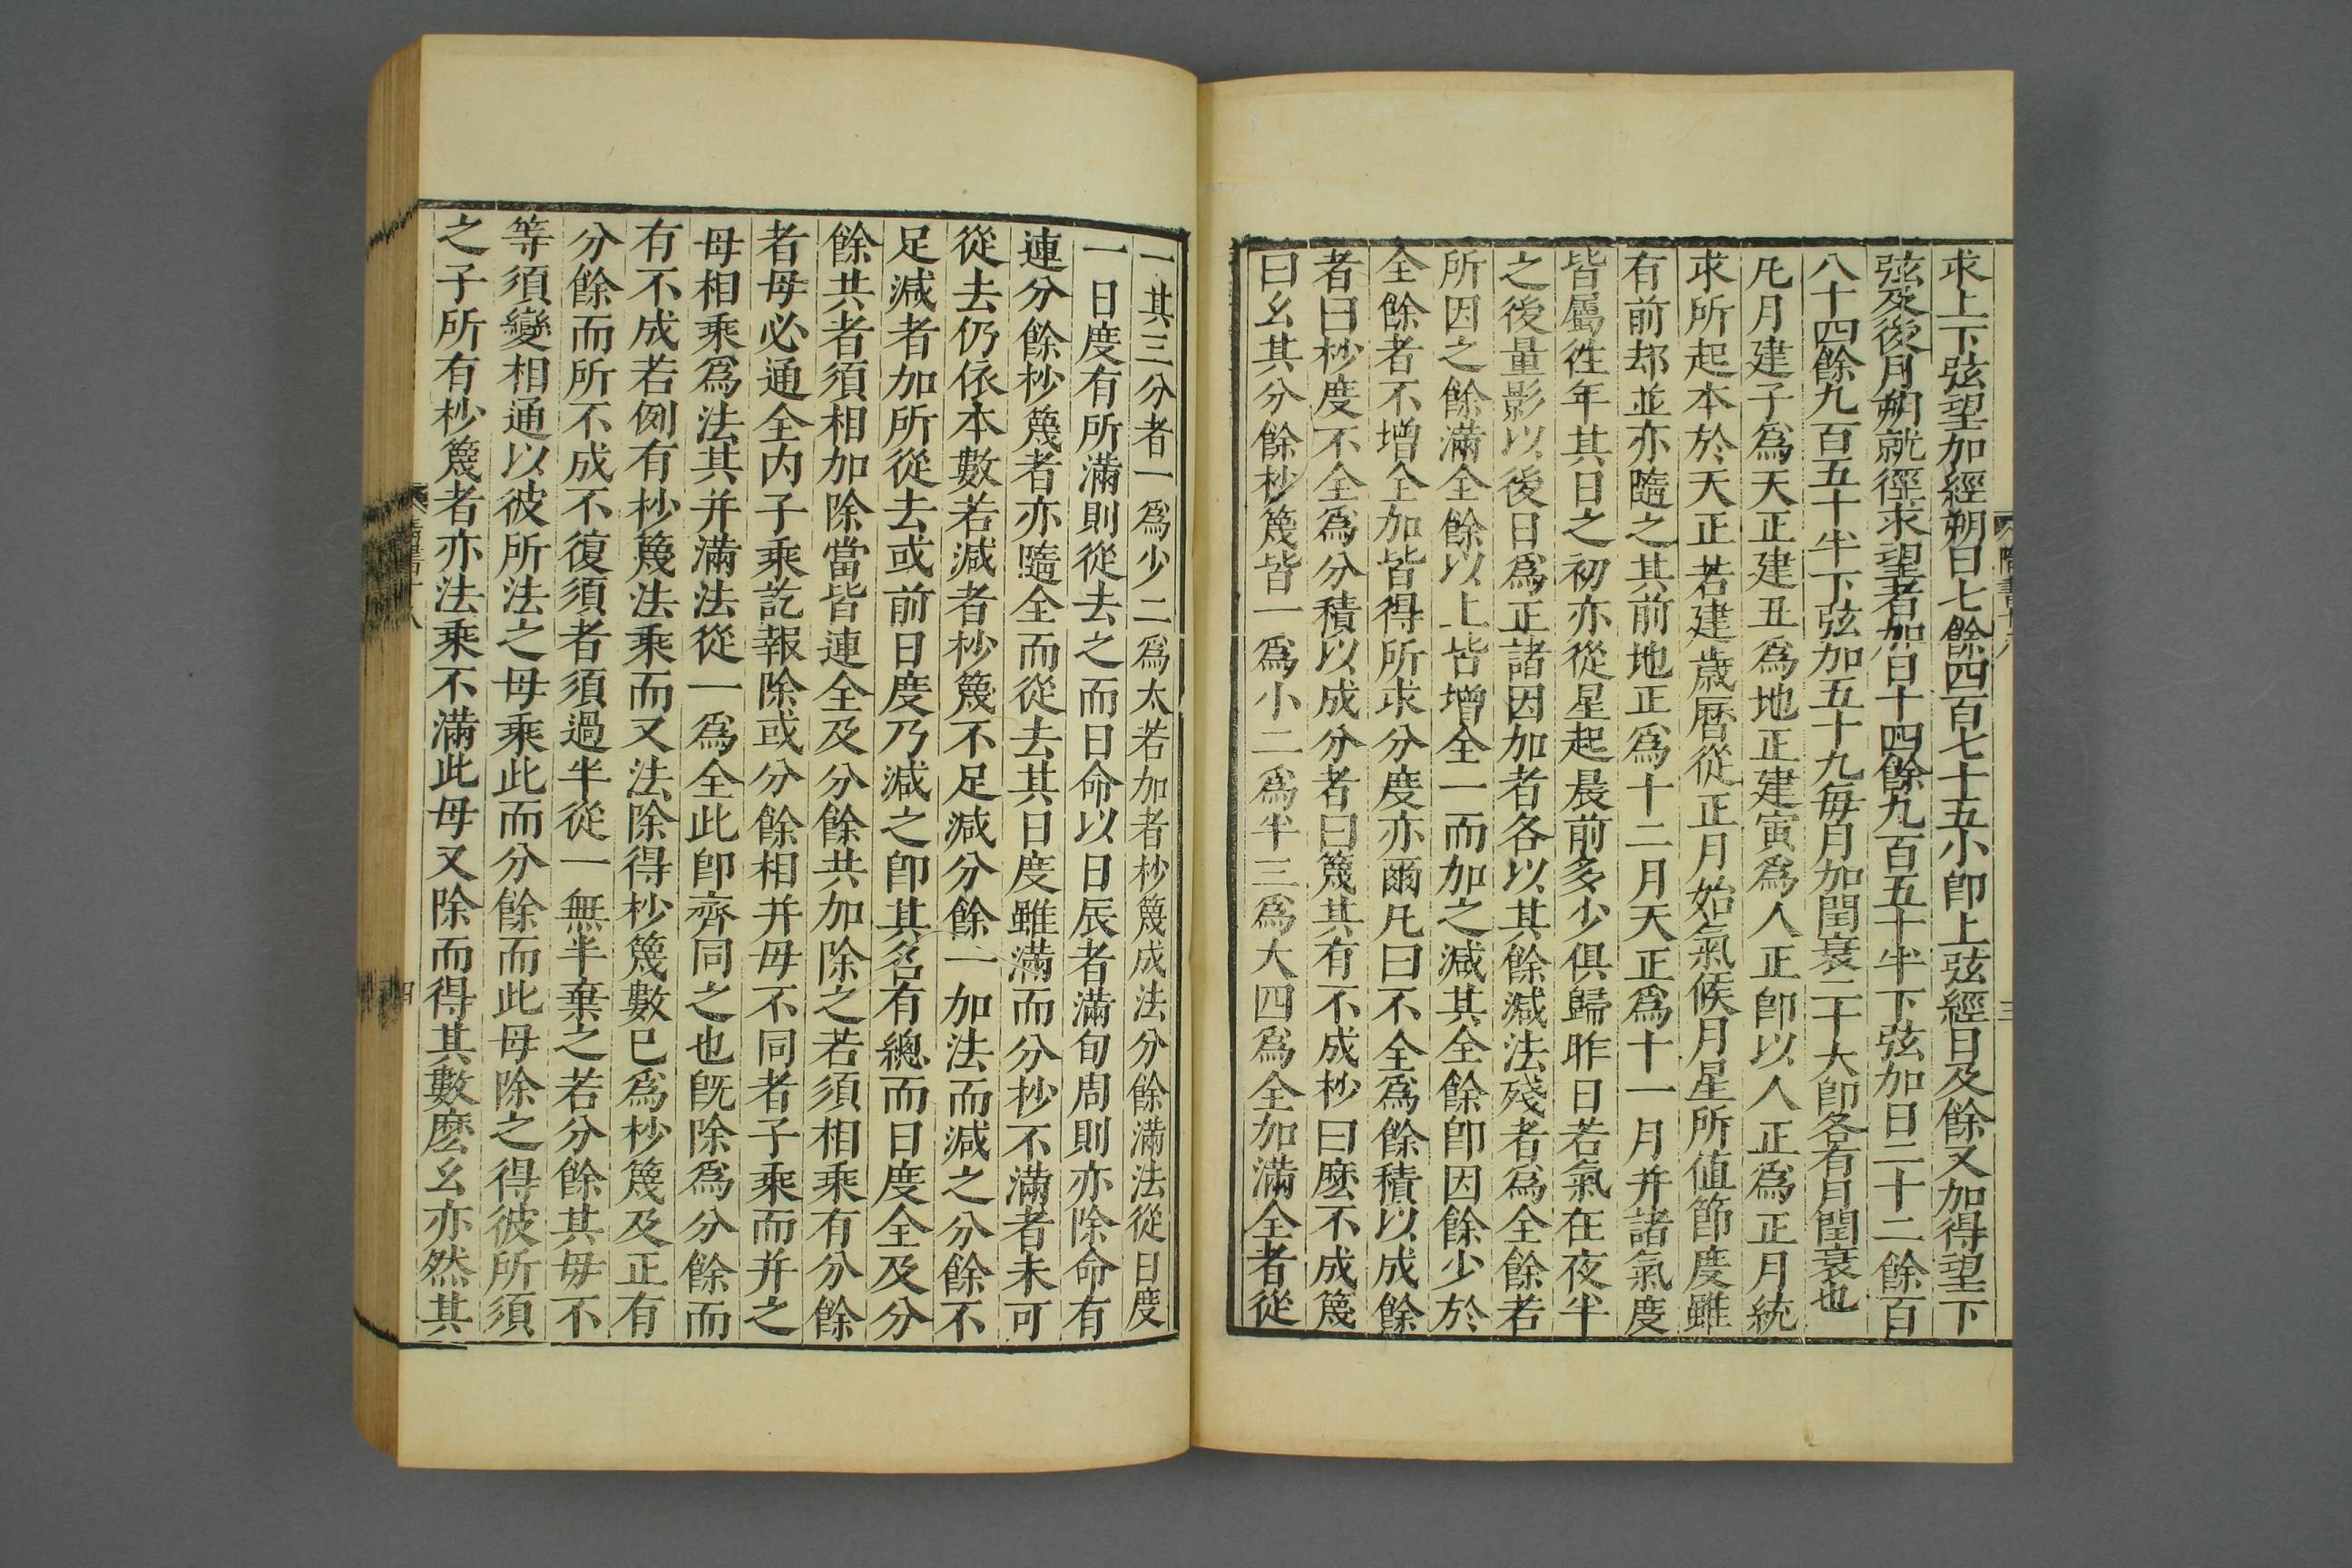 求上下弦望加經朔日七餘四百七十五小卽上弦經日及餘又加得望下
弦及後月朔就徑求望者加日十四餘九百五十半下弦加日二十二餘百
八十四餘九百五十半下弦加五十九每月加閏衰二十大卽各有月閏衰也
凡月建子爲天正建丑爲地正建寅爲人正卽以人正爲正月統
求所起本於天正若建歲曆從正月始氣候月星所値節度雖
有前却並亦隨之其前地正爲十二月天正爲十一月并諸氣度
皆屬徃年其日之初亦從星起晨前多少俱歸昨日若氣在夜半
之後量影以後日爲正諸因加者各以其餘減法殘者爲全餘若
所因之餘滿全餘以上皆增全一而加之減其全餘卽因餘少於
全餘者不增全加皆得所求分度亦爾凡曰不全爲餘積以成餘
者曰秒度不全爲分積以成分者曰篾其有不成秒曰麽不成篾
曰幺其分餘秒篾皆一爲小二爲半三爲大四爲全加滿全者從
一其三分者一爲少二爲太若加者秒篾成法分餘滿法從日度
一日度有所滿則從去之而日命以日辰者滿旬周則亦除命有
連分餘秒篾者亦隨全而從去其日度雖滿而分秒不滿者未可
從去仍依本數若減者秒篾不足減分餘一加法而減之分餘不
足減者加所從去或前日度乃減之卽其名有總而日度全及分
餘共者須相加除當皆連全及分餘共加除之若須相乘有分餘
者母必通全内子乘訖報除或分餘相并母不同者子乘而并之
母相乘爲法其并滿法從一爲全此卽齊同之也旣除爲分餘而
有不成若例有秒篾法乘而又法除得秒篾數已爲秒篾及正有
分餘而所不成不復須者須過半從一無半棄之若分餘其母不
等須變相通以彼所法之母乘此而分餘而此母除之得彼所須
之子所有秒篾者亦法乘不滿此母又除而得其數麽幺亦然其